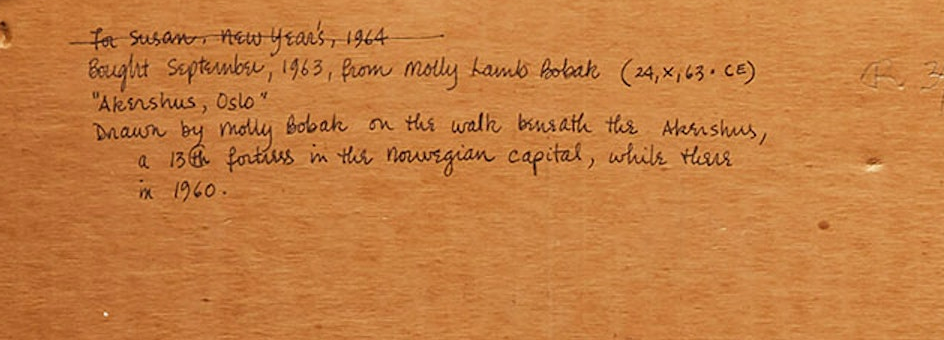 For Susan. New Year's, 1964
Bought September, 1963, from Molly Lamb Bobak (24,X,63. CE)
"Akershus, Oslo"
Drawn by Molly Bobak on the walk beneath the Akershus,
a 13th fortress in the Norwegian capital, while there
in 1960.